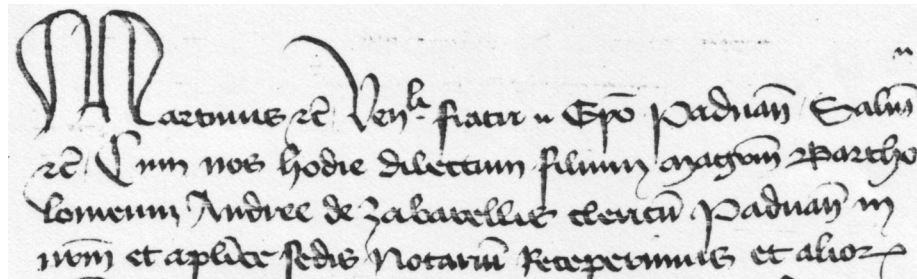 Martinus etc Ven^li fratri .. Epō Paduan̄ Salut̄
etc Cum nos hodie dilectum filium magrm̄ Bartho
lomeum Andree de Zabarellis clericū Paduan̄ in
nrm̄ et aplice sedis Notariū Receperimus et alior